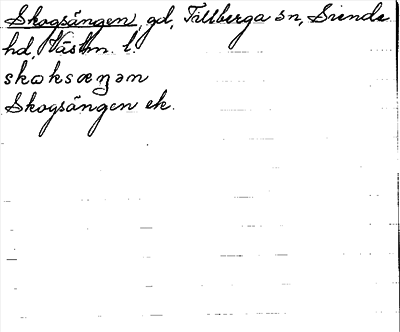 Skogsängen, gd, Tillberga sn, Siende
hd, Västm. l.
skɷksæŋən
Skogsängen ek.